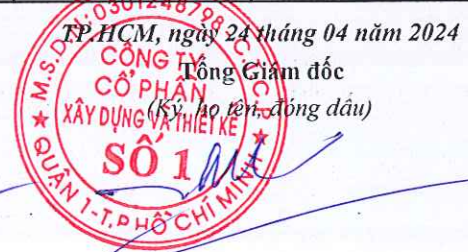 TP.HCM, ngày 24 tháng 04 năm 2024
Tổng Giám đốc
(Ký, họ tên, đóng dấu)
M.S.D.N: 0301248798 - C.T.C.P
CÔNG TY
CỔ PHẦN
XÂY DỰNG VÀ THIẾT KẾ
SỐ 1
QUẬN 1-T.PHỐ CHÍ MINH